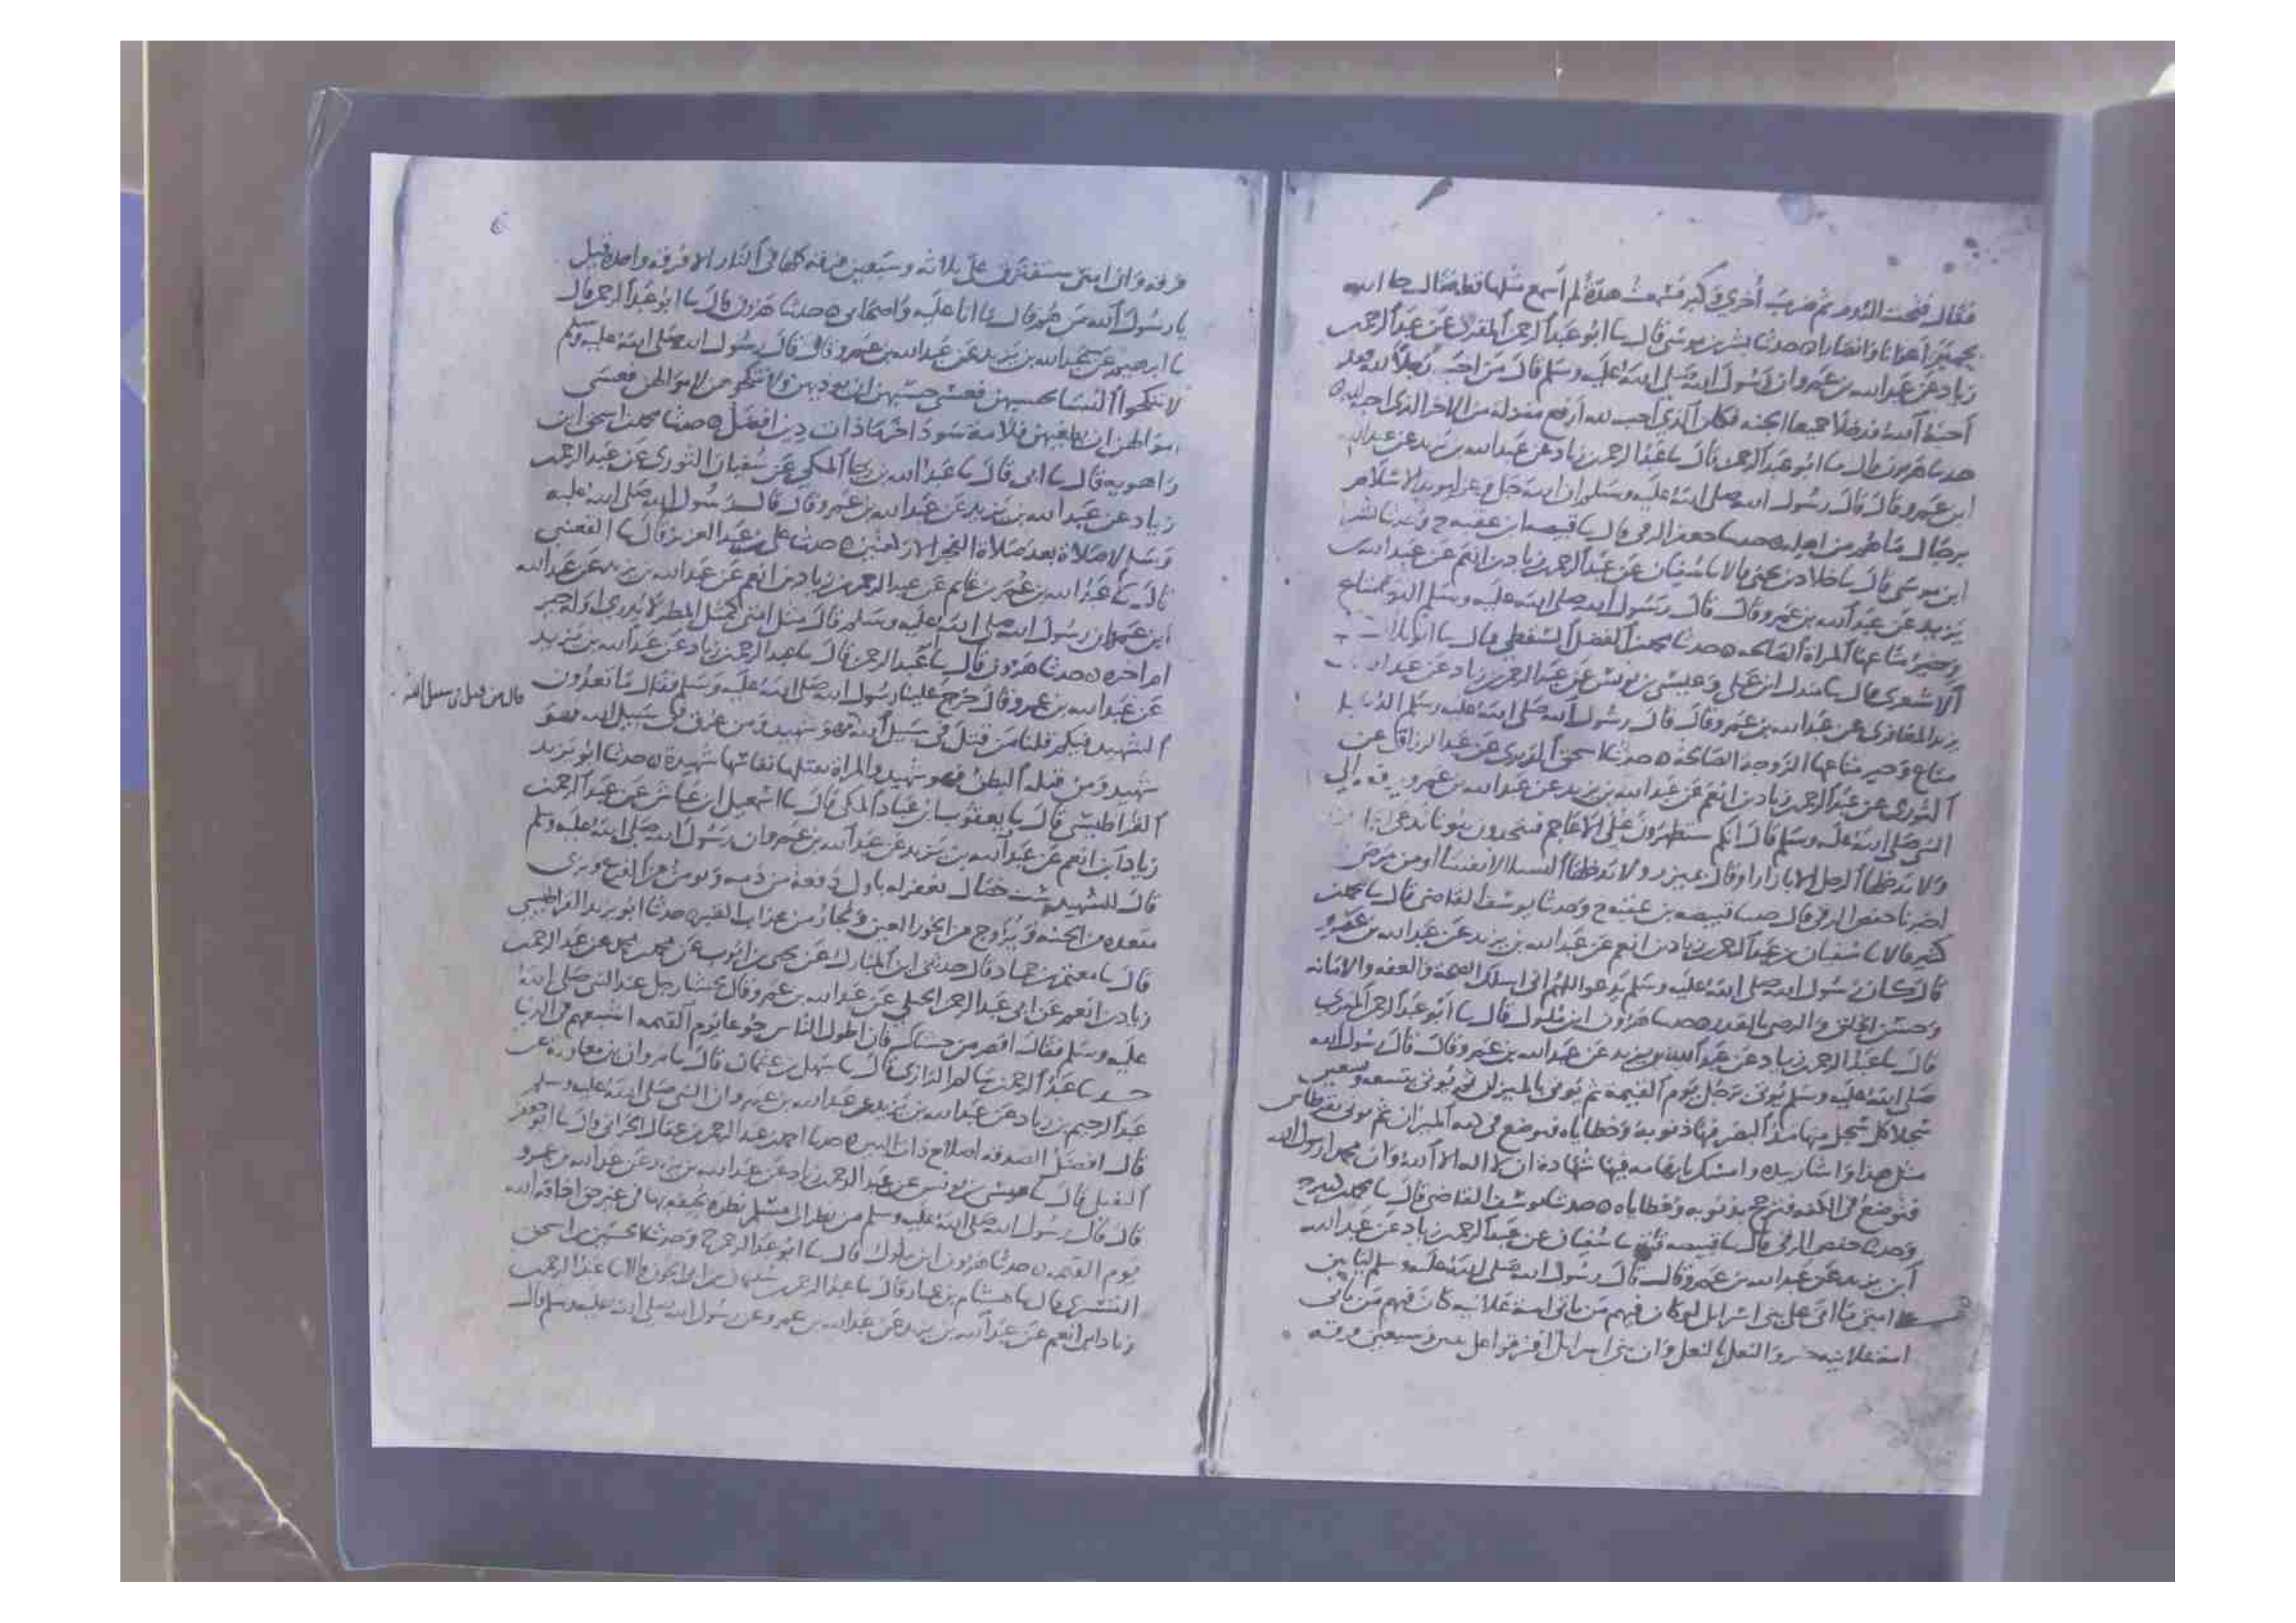 فقال فتحت الروم ثم ضرب أخرى وكبر فسمعت هدة لم أسمع مثلها قط فقال جا الله
بحمير أعوانا وأنصارا ٥ حدثنا بشر بن موسى قال نا ابو عبد الرحمن المقرى عن عبد الرحمن
زياد عن عبد الله بن عمرو ان رسول الله صلى الله عليه وسلم قال من احب رجلا لله فقد
أحبه الله فدخلا جميعا الجنه فكان الذي احب لله ارفع منزله من الاخر الذي احب لله ٥
حدثنا هرون قال نا ابو عبد الرحمن قال نا عبد الرحمن زياد عن عبد الله بن يزيد عن عبد الله
ابن عمرو قال قال رسول الله صلى الله عليه وسلم ان الله جل وعز ليويد الاسلام
برجال ما هم من اهله ٥ حدثنا حفص الرقى قال نا قبيصه ابن عقبه ح وحدثنا بشر
ابن موسى قال نا خلاد بن يحيى قالا نا سفيان عن عبد الرحمن زياد بن انعم عن عبد الله بن
يزيد عن عبد الله بن عمرو قال قال رسول الله صلى الله عليه وسلم الدنيا متاع
وخير متاعها المراة الصالحه ٥ حدثنا محمد بن الفضل السقطي قال نا ابو بلال
الاشعرى قال نا مندل ابن على وعيسى بن يونس عن عبد الرحمن زياد عن عبد الله بن
يزيد المعافرى عن عبد الله بن عمرو قال قال رسول الله صلى الله عليه وسلم الدنيا
متاع وخير متاعها الزوجة الصالحة ٥ حدثنا اسحق الدبرى عن عبد الرزاق عن
الثورى عن عبد الرحمن زياد بن انعم عن عبد الله بن يزيد عن عبد الله بن عمرو يرفعه الى
النبي صلى الله عليه وسلم قال انكم ستظهرون على الاعاجم فتجدون بيوتا تدعى
ولا يدخلها الرجل الا بازار او قال بميزر ولا تدخلها النسا الا نفسا او من مرض
اخبرنا حفص الرقى قال حدثنا قبيصه بن عقبه ح وحدثنا يوسف القاضى قال نا محمد بن
كثير قالا نا سفيان عن عبد الرحمن زياد بن انعم عن عبد الله بن يزيد عن عبد الله بن عمرو
قال كان رسول الله صلى الله عليه وسلم يدعو اللهم انى اسلك الصحة والعفه والامانه
وحسن الخلق والرضى بالقدر ٥ حدثنا هرون ابن ملول قال نا ابو عبد الرحمن المقرى
قال نا عبد الرحمن زياد عن عبد الله بن يزيد عن عبد الله بن عمرو قال قال رسول الله
صلى الله عليه وسلم يوتى برجل يوم القيمة ثم يوتى بالميزان ثم يوتى بتسعه وتسعين
سجلا كل سجل منها مد البصر فيها ذنوبه وخطاياه فتوضع في كفه الميزان ثم يوتى بقرطاس
مثل هذا واشار بيده وامسك بابهامه فيها شهادة ان لا اله الا الله وان محمدا رسول الله
فتوضع فى الكفه فترجح بذنوبه وخطاياه ٥ حدثنا يوسف القاضى قال نا محمد كثير ح
وحدثنا حفص الرقى قال نا قبيصه قالا نا سفيان عن عبد الرحمن زياد عن عبد الله
ابن يزيد عن عبد الله بن عمرو قال قال رسول الله صلى الله عليه وسلم لياتين
على امتى ما اتى على بنى اسرايل لو كان فيهم من ياتى امه علانيه كان فيهم من ياتى
امه علانيه حذو النعل بالنعل وان بنى اسرايل افترقوا على وسبعين فرقه
فرقه وان امتى ستفترق على ثلاثه وسبعين فرقه كلها في النار الا فرقه واحده قيل
يا رسول الله من هم قال ما انا عليه واصحابى ٥ حدثنا هرون قال نا ابو عبد الرحمن قال
نا عن عبد الله بن يزيد عن عبد الله بن عمرو قال قال رسول الله صلى الله عليه وسلم
لا تنكحوا النسا لحسنهن فعسى حسنهن ان يرديهن ولا تنكحوهن لاموالهن فعسى
اموالهن ان تطغيهن فلامة سودا خرما ذات دين افضل ٥ حدثنا محمد بن اسحق ابن
راهويه قال نا ابى قال نا عبد الله بن المكى عن سفيان الثورى عن عبد الرحمن
زياد عن عبد الله بن يزيد عن عبد الله بن عمرو قال قال رسول الله صلى الله عليه
وسلم لا صلاة بعد صلاة الفجر الا ركعتين ٥ حدثنا على بن عبد العزيز قال نا القعنبى
قال نا عبد الله بن عمر بن غانم عن عبد الرحمن زياد بن انعم عن عبد الله بن يزيد عن عبد الله
ابن عمرو ان رسول الله صلى الله عليه وسلم قال مثل امتى كمثل المطر لا يدرى اوله خير
ام اخره ٥ حدثنا هرون قال نا عبد الرحمن قال نا عبد الرحمن زياد عن عبد الله بن يزيد
عن عبد الله بن عمرو قال خرج علينا رسول الله صلى الله عليه وسلم فقال ما تعدون
الشهيد فيكم قلنا من قتل فى سبيل الله فهو شهيد ومن غرق فى سبيل الله فهو
قال من قتل فى سبيل الله
شهيد ومن قتله البطن فهو شهيد والمراة يقتلها نفاسها شهيدة ٥ حدثنا ابو يزيد
القراطيسى قال نا يعقوب بن ابى عباد المكى قال نا اسمعيل ابن عياش عن عبد الرحمن
زياد ابن انعم عن عبد الله بن يزيد عن عبد الله بن عمرو ان رسول الله صلى الله عليه وسلم
قال للشهيد ست خصال يغفر له باول دفعة من دمه ويومن من الفزع ويرى
مقعده من الجنه ويزوج من الحور العين ويجار من عذاب القبر ٥ حدثنا ابو يزيد القراطيسى
قال نا نعيم بن حماد قال حدثنى ابن المبارك عن يحيى بن ايوب عن عن عبد الرحمن
زياد بن انعم عن ابى عبد الرحمن الحبلى عن عبد الله بن عمرو قال تجشا رجل عند النبى صلى الله
عليه وسلم فقال اقصر من جشاك فان اطول الناس جوعا يوم القيمه اشبعهم فى الدنيا
حدثنا عبد الرحمن سالم الرازى قال نا سهل بن عثمان قال نا مروان بن معاوية عن
عبد الرحيم بن زياد عن عبد الله بن يزيد عن عبد الله بن عمرو ان النبى صلى الله عليه وسلم
قال افضل الصدقه اصلاح ذات البين ٥ حدثنا احمد بن عبد الرحمن بن عقال الحرانى قال نا ابو جعفر
النفيلى قال نا عيسى بن يونس عن عبد الرحمن زياد عن عبد الله بن يزيد عن عبد الله بن عمرو
قال قال رسول الله صلى الله عليه وسلم من نظر الى مسلم نظرة يخيفه بها فى غير حق اخافه الله
يوم القيمه ٥ حدثنا هرون ابن ملول قال نا ابو عبد الرحمن ح وحدثنا الحسين بن اسحق
التسترى قال نا هشام بن عمار قال نا عبد الرحمن سليمان بن ابى الجون قالا نا عبد الرحمن
زياد ابن انعم عن عبد الله بن يزيد عن عبد الله بن عمرو عن رسول الله صلى الله عليه وسلم قال